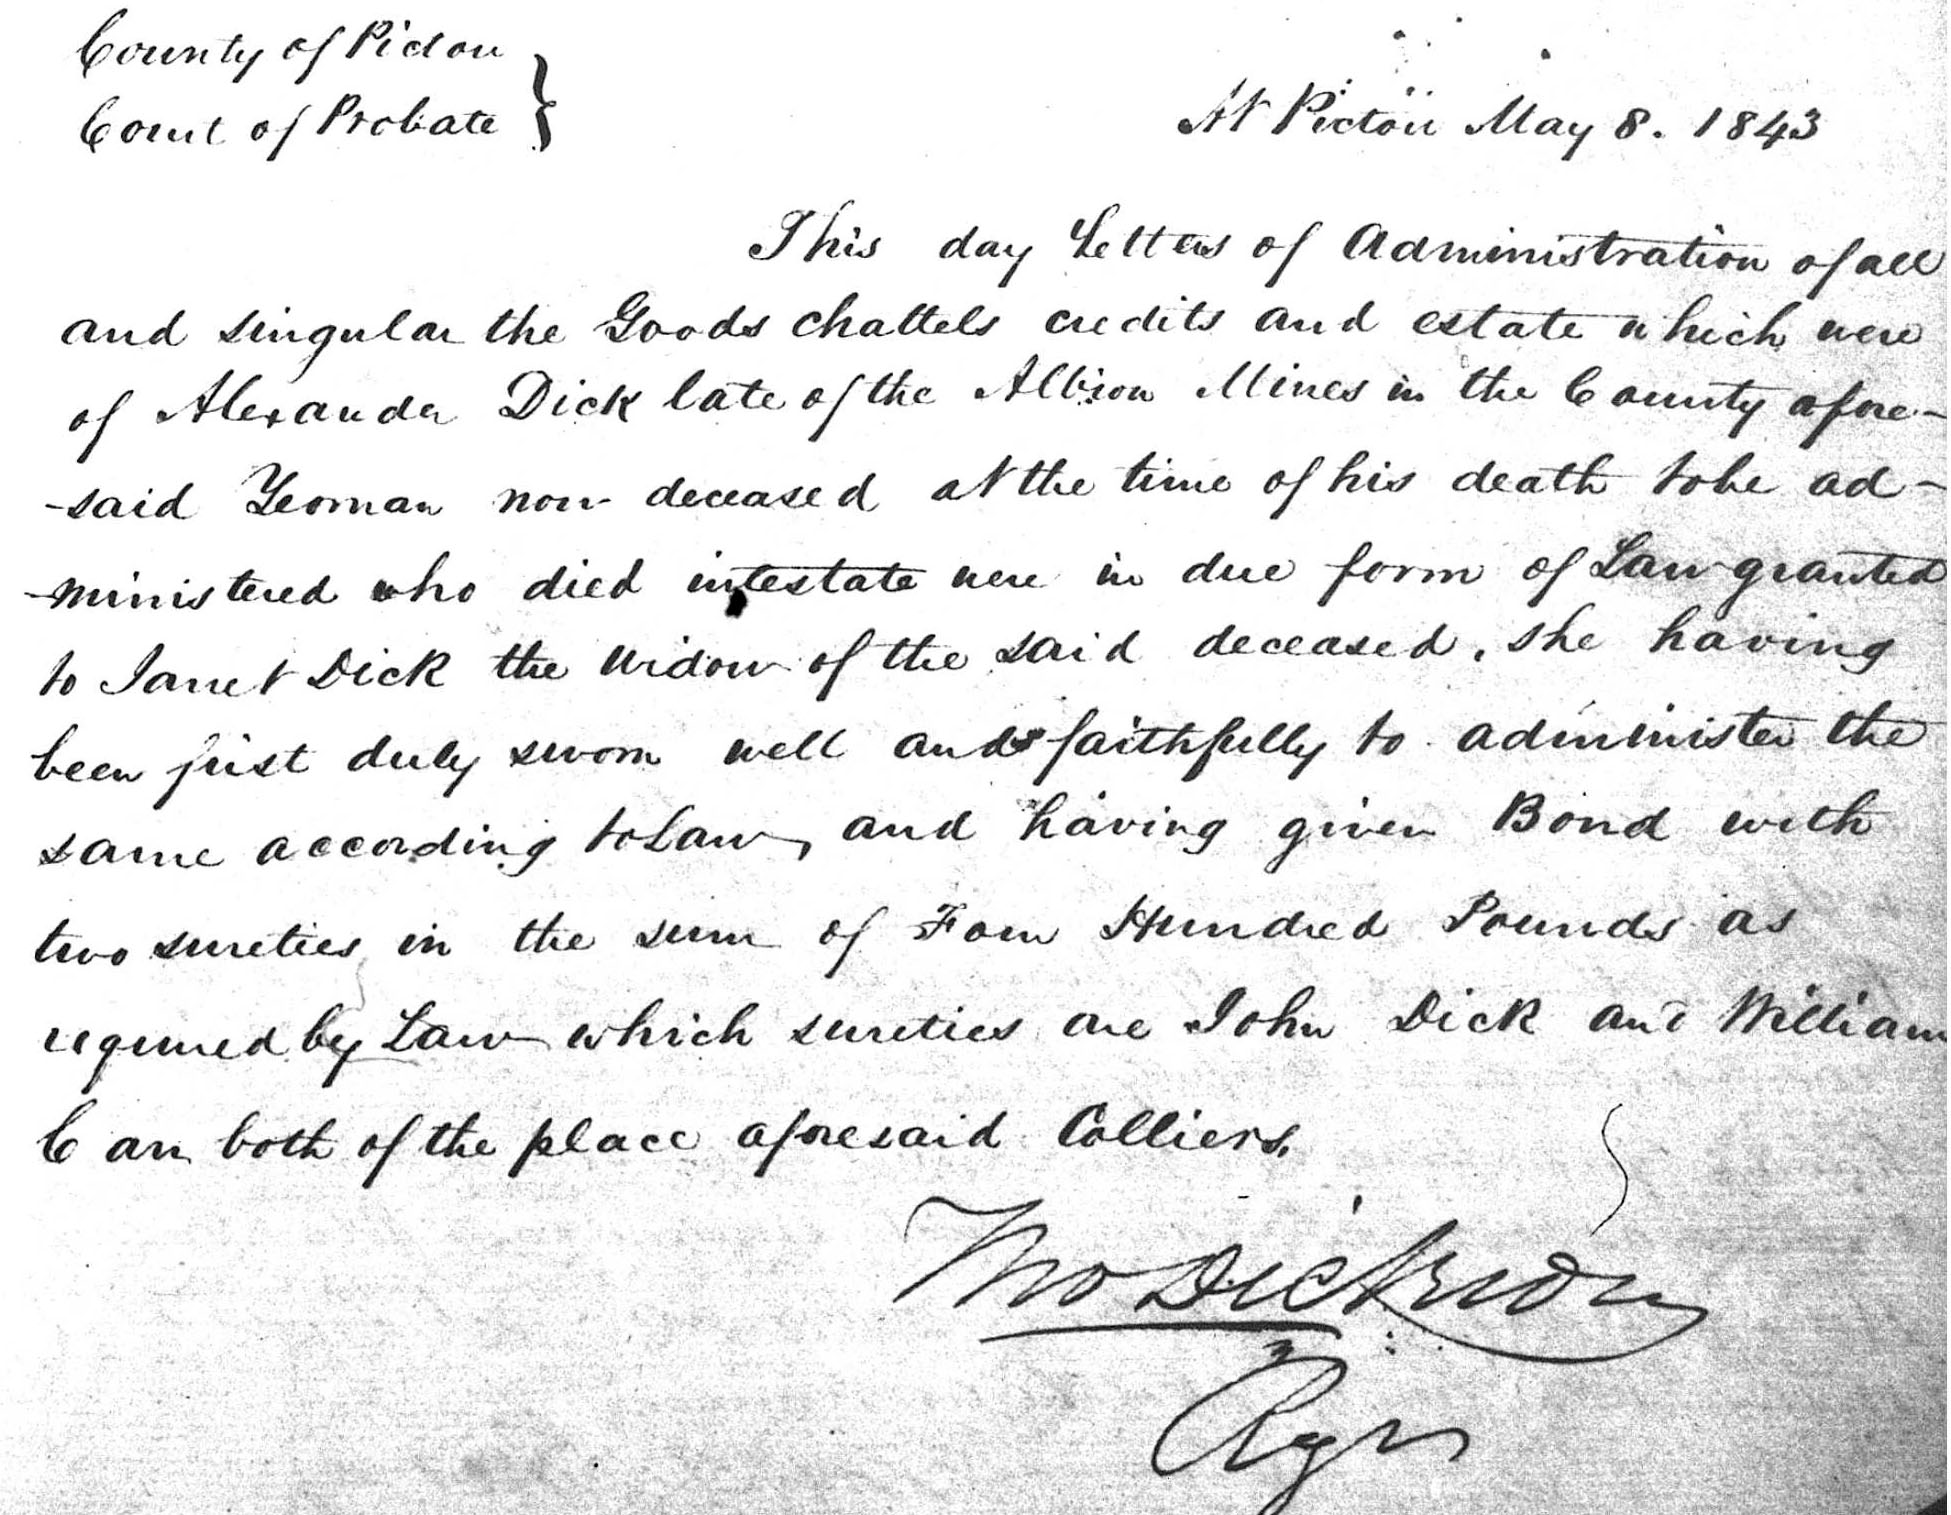 County of Pictou
Court of Probate
At Pictou May 8. 1843
This day Letters of Administration of all
and singular the Goods chattels credits and estate which were
of Alexander Dick late of the Albion Mines in the County afore-
-said Yeoman now deceased at the time of his death to be ad-
-ministered who died intestate were in due form of Law granted
to Janet Dick the widow of the said deceased, she having
been first duly sworn well and faithfully to administer the
same according to Law, and having given Bond with
two sureties in the sum of Four Hundred Pounds as
required by Law which sureties are John Dick and William
Carr both of the place aforesaid Colliers.
Tho Dickson
Regr